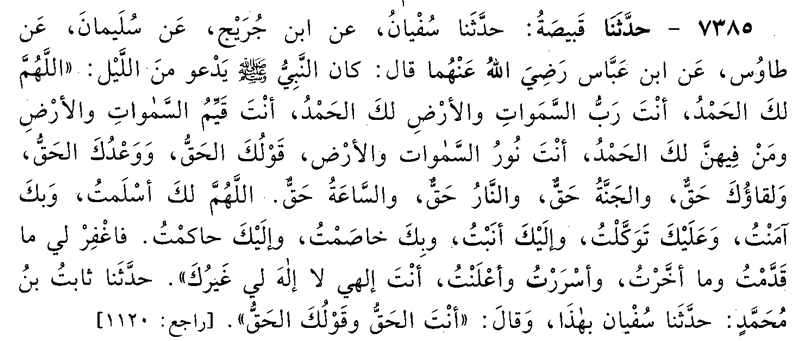 ٧٣٨٥ - حدَّثَنَا قَبِيصَةُ: حدَّثَنا سُفْيانُ، عن ابن جُرَيْجٍ، عَن سُلَيمانَ، عَن
طاوُس، عَن ابن عَبَّاس رَضِيَ اللهُ عَنْهُما قال: كان النَّبِيُّ ﷺ يَدْعو منَ اللَّيْل: «اللَّهُمَّ
لكَ الحَمْدُ، أنْتَ رَبُّ السَّمَواتِ والأرْضِ لكَ الحَمْدُ، أنْتَ قَيِّمُ السَّمٰواتِ والأرْضِ
ومَنْ فِيهنَّ لكَ الحَمْدُ، أنْتَ نُورُ السَّمٰوات والأرْض، قَوْلُكَ الحَقُّ، وَوَعْدُكَ الحَقُّ،
وَلقاؤُكَ حَقٌّ، والجَنَّةُ حَقٌّ، والنَّارُ حَقٌّ، والسَّاعَةُ حَقٌّ. اللَّهُمَّ لكَ أسْلَمتُ، وَبكَ
آمَنْتُ، وَعَلَيْكَ تَوَكَّلْتُ، وإلَيْكَ أنَبْتُ، وبِكَ خاصَمْتُ، وإلَيْكَ حاكمْتُ. فاغْفِرْ لي ما
قَدَّمْتُ وما أخَّرْتُ، وأسْرَرْتُ وأعْلَنْتُ، أنْتَ إلهي لا إلٰهَ لي غَيرُكَ». حدَّثَنا ثابتُ بنُ
مُحَمَّدٍ: حدَّثَنا سُفْيان بهٰذَا، وَقالَ: «أنْتَ الحَقُّ وقَوْلُكَ الحَقُّ». [راجع: ١١٢٠]